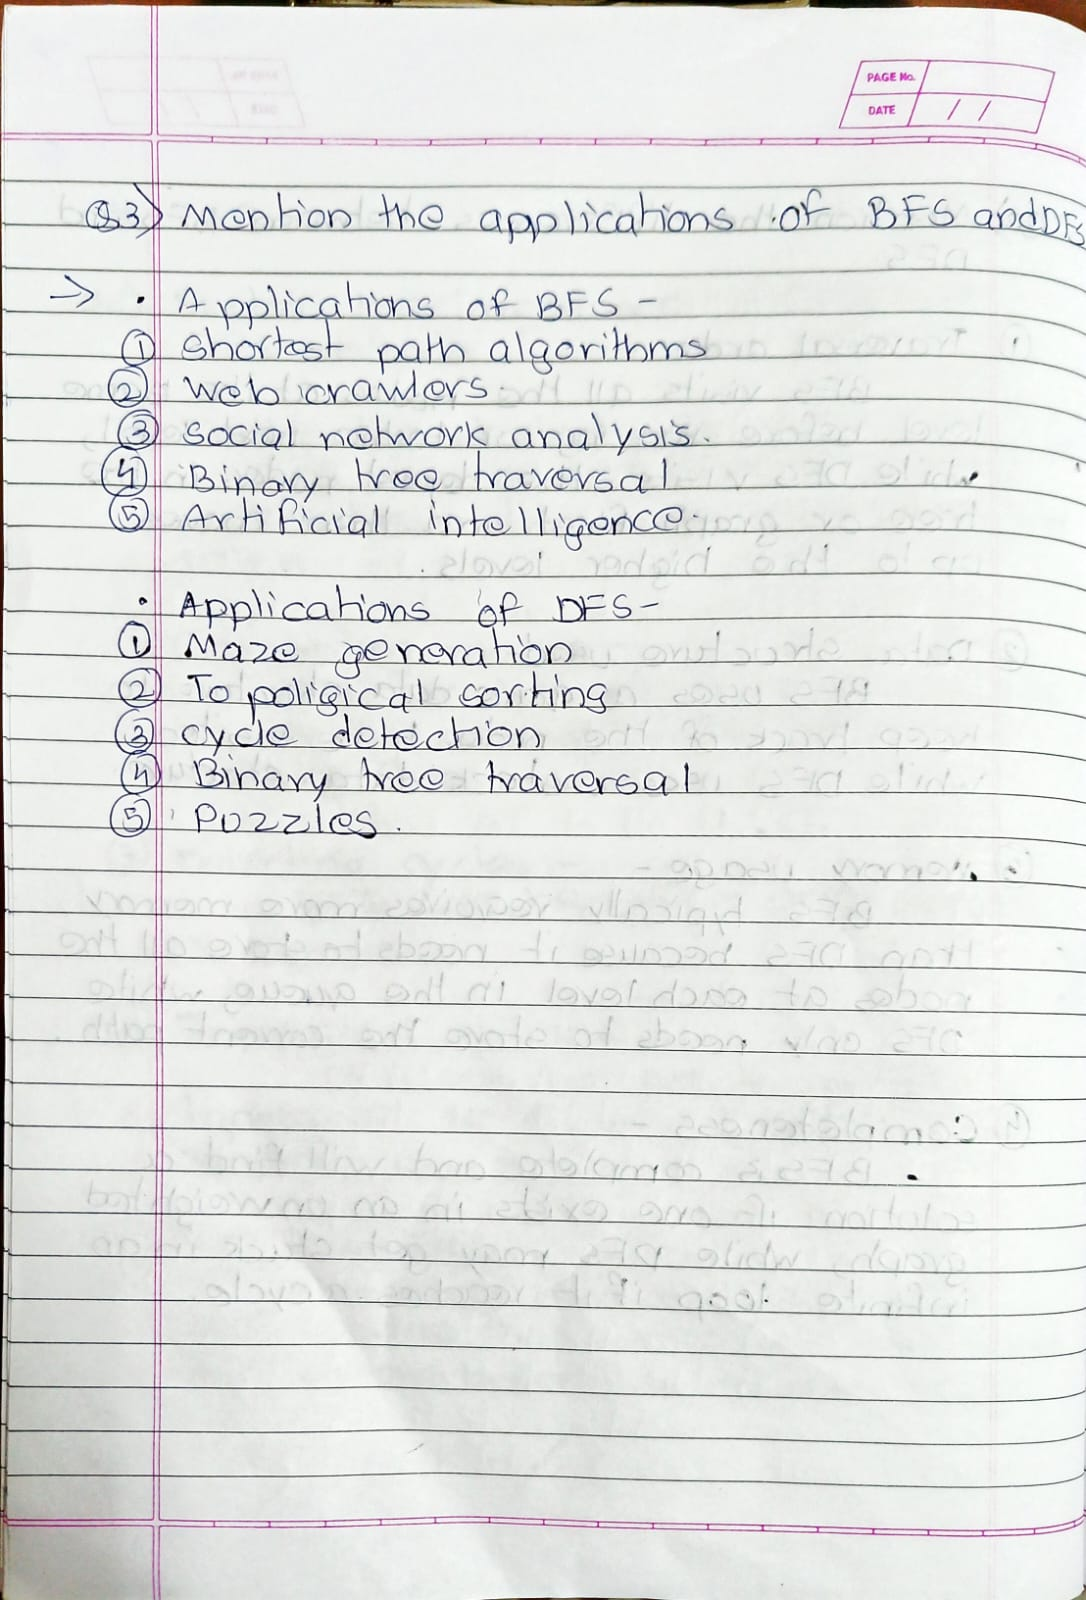 PAGE No.
DATE / /
Q3) Mention the applications of BFS and DFS
→ • Applications of BFS -
① Shortest path algorithms
② Web crawlers.
③ Social network analysis.
④ Binary tree traversal
⑤ Artificial intelligence.
• Applications of DFS -
① Maze generation
② Topoligical sorting
③ cycle detection
④ Binary tree traversal
⑤ Puzzles.